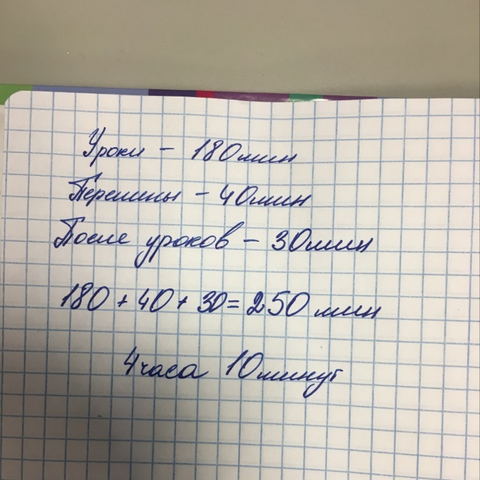 Уроки - 180мин
Перемены - 40мин
После уроков - 30мин
180 + 40 + 30 = 250 мин
4часа 10минут